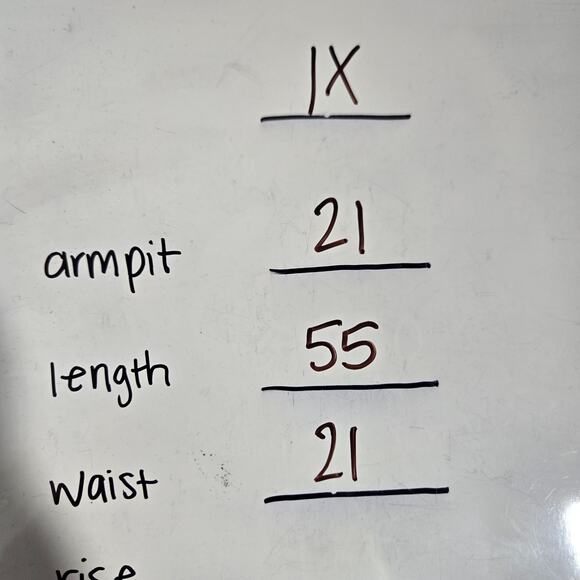 1X
armpit 21
length 55
waist 21
rise